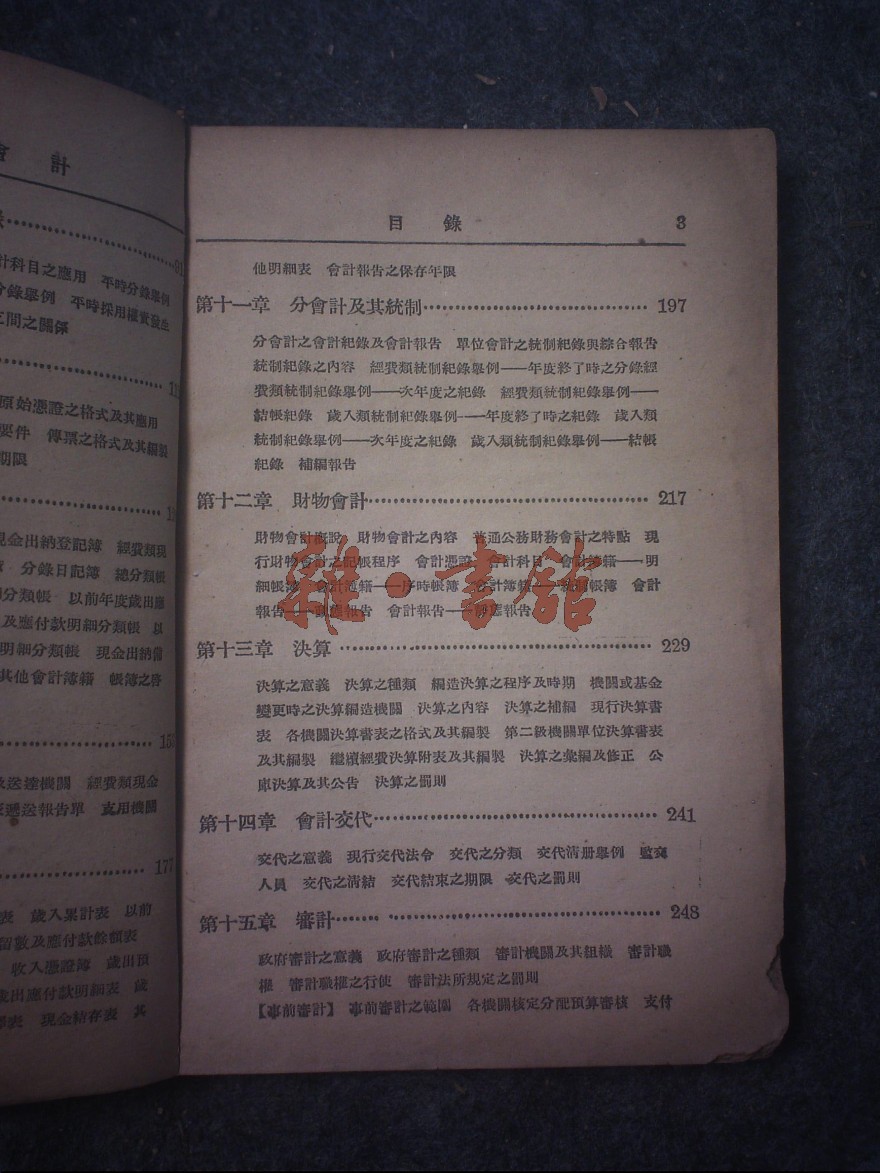 會 計
計科目之應用 平時分錄舉例
分錄舉例 平時採用權實發生
之間之關係
原始憑證之格式及其應用
要件 傳票之格式及其編製
期限
現金出納登記簿 經費類現
分錄日記簿 總分類帳
細分類帳 以前年度歲出應
及應付款明細分類帳 以
明細分類帳 現金出納備
其他會計簿籍 帳簿之啓
及送達機關 經費類現金
遞送報告單 支用機關
177
表 歲入累計表 以前
留數及應付款餘額表
收入憑證簿 歲出預
歲出應付款明細表 歲
表 現金結存表 其
目 錄 3
他明細表 會計報告之保存年限
第十一章 分會計及其統制 197
分會計之會計紀錄及會計報告 單位會計之統制紀錄與綜合報告
統制紀錄之內容 經費類統制紀錄舉例——年度終了時之分錄經
費類統制紀錄舉例——次年度之紀錄 經費類統制紀錄舉例——
結帳紀錄 歲入類統制紀錄舉例——年度終了時之紀錄 歲入類
統制紀錄舉例——次年度之紀錄 歲入類統制紀錄舉例——結帳
紀錄 補編報告
第十二章 財物會計 217
財物會計概說 財物會計之內容 普通公務財務會計之特點 現
行財物會計之記帳程序 會計憑證 會計科目 會計簿籍——明
細帳簿 會計簿籍——序時帳簿 會計簿籍——統制帳簿 會計
報告——動態報告 會計報告——靜態報告
雜·書館
第十三章 決算 229
決算之意義 決算之種類 編造決算之程序及時期 機關或基金
變更時之決算編造機關 決算之內容 決算之補編 現行決算書
表 各機關決算書表之格式及其編製 第二級機關單位決算書表
及其編製 繼續經費決算附表及其編製 決算之彙編及修正 公
庫決算及其公告 決算之罰則
第十四章 會計交代 241
交代之意義 現行交代法令 交代之分類 交代清册舉例 監交
人員 交代之清結 交代結束之期限 交代之罰則
第十五章 審計 248
政府審計之意義 政府審計之種類 審計機關及其組織 審計職
權 審計職權之行使 審計法所規定之罰則
【事前審計】 事前審計之範圍 各機關核定分配預算審核 支付